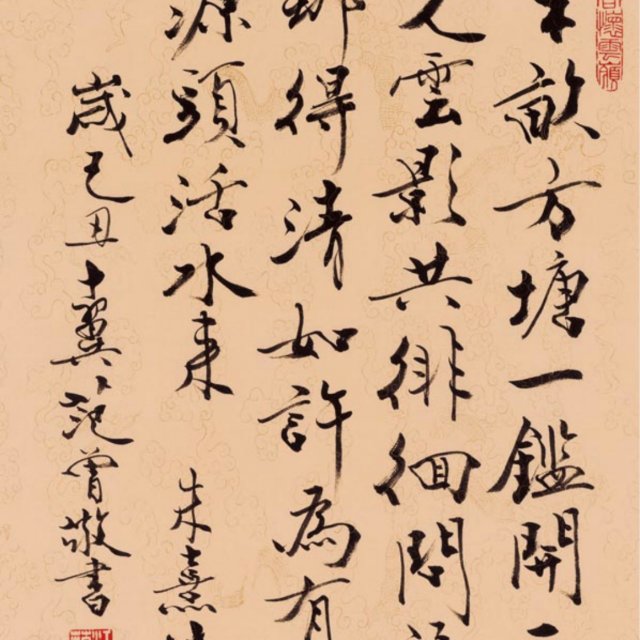 畝方塘一鑑開
雲影共徘徊問
那得清如許為有
源頭活水来 朱熹
歲己丑十翼范曾敬書